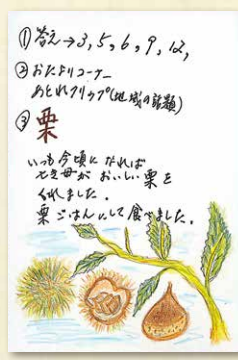 ① 答え→3,5,6,9,12,
② おたよりコーナー
あとれクリップ(地域の話題)
③ 栗
いつも今頃になれば
亡き母がおいしい栗を
くれました。
栗ごはんにして食べました。